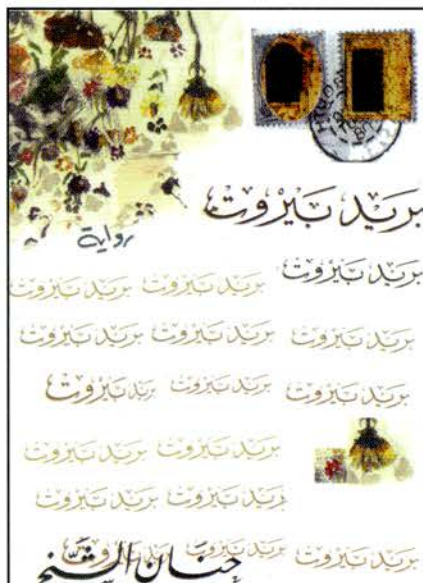 بَرِيْد بَيْرُوتْ
رواية
بَرِيْد بَيْرُوتْ بَرِيْد بَيْرُوتْ بَرِيْد بَيْرُوتْ
بَرِيْد بَيْرُوتْ بَرِيْد بَيْرُوتْ بَرِيْد بَيْرُوتْ
بَرِيْد بَيْرُوتْ بَرِيْد بَيْرُوتْ بَرِيْد بَيْرُوتْ
بَرِيْد بَيْرُوتْ بَرِيْد بَيْرُوتْ
بَرِيْد بَيْرُوتْ بَرِيْد بَيْرُوتْ
بَرِيْد بَيْرُوتْ بَرِيْد بَيْرُوتْ بَرِيْد بَيْرُوتْ
حنان الشيخ